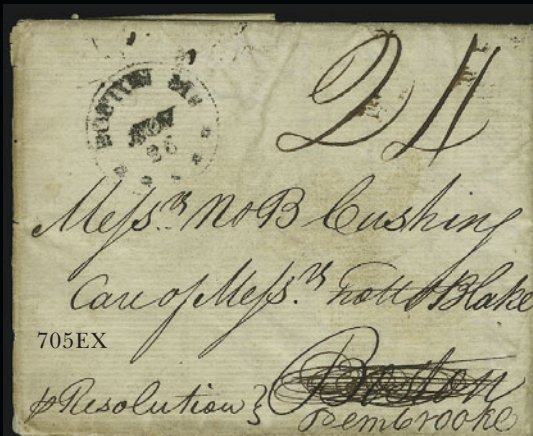 BOSTON MS
NOV
26
24
Mess.rs N & B Cushing
Care of Mess.rs Trott & Blake
705EX
Boston
p Resolution }
Pembrooke